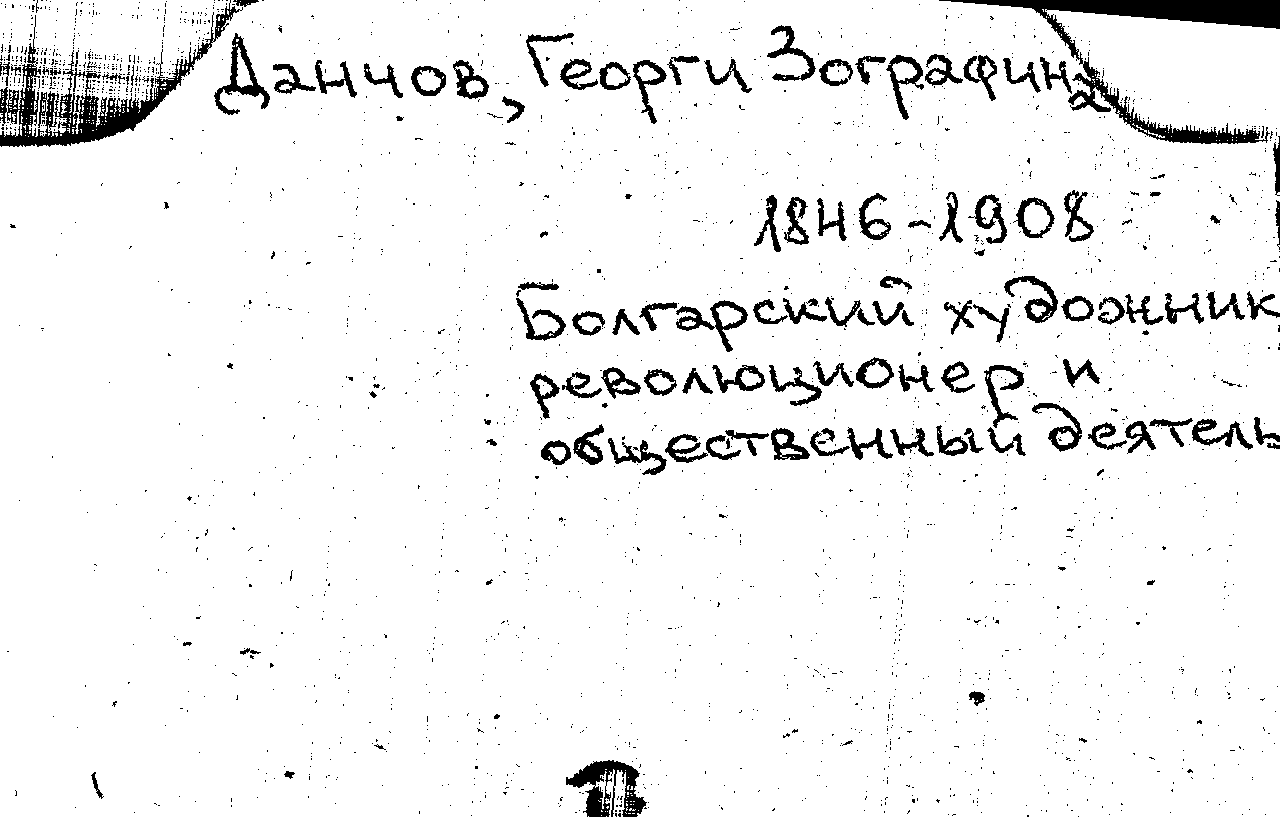 Данчов, Георги Зографина
1846-1908
Болгарский художник
революционер и
общественный деятель